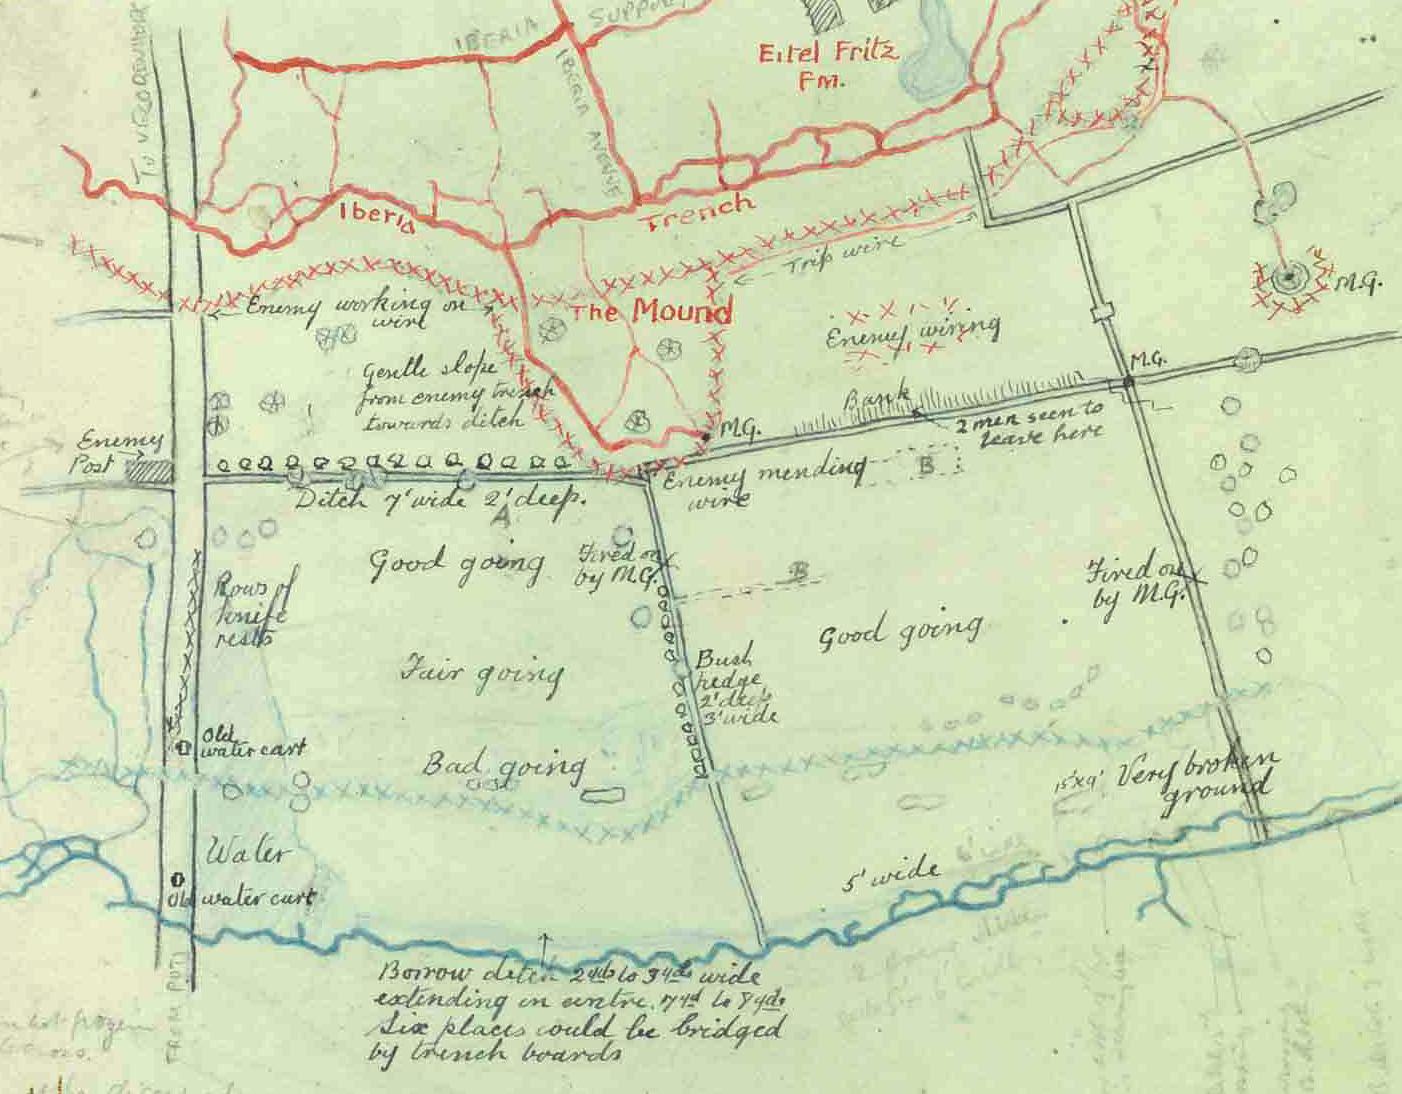 To VROODENHOEK
IBERIA
SUPPORT
IBERIA AVENUE
Eitel Fritz
Fm.
Iberia
Trench
Trip wire
M.G.
Enemy working on
wire
The Mound
Enemy wiring
M.G.
Gentle slope
from enemy trench
towards ditch
Bank
2 men seen to
leave here
M.G.
Enemy
Post
Enemy mending
wire
B
Ditch 7' wide 2' deep.
A
Good going
Fired on
by M.G.
B
Fired on
by M.G.
Rows of
knife
rests
Good going
Fair going
Bush
hedge
2' deep
3' wide
Old
water cart
Bad going
15'x9' Very broken
ground
Water
5' wide
6' wide
Old water cart
Borrow ditch 2 yds to 3 yds wide
extending in centre, 7 yd to 8 yds
Six places could be bridged
by trench boards
FROM POTI
not frozen